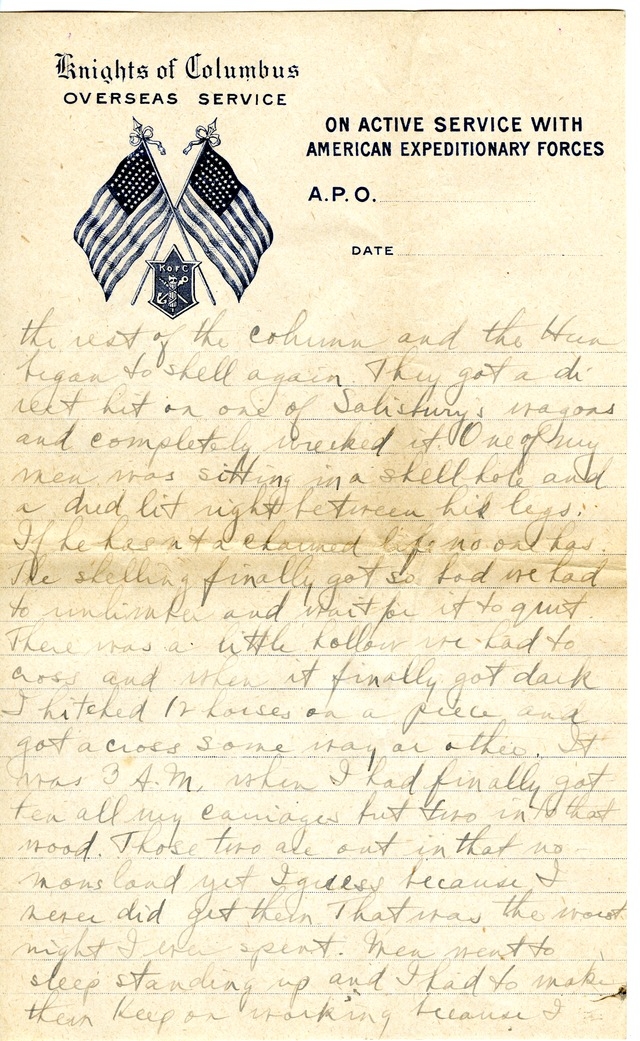 Knights of Columbus
OVERSEAS SERVICE
ON ACTIVE SERVICE WITH
AMERICAN EXPEDITIONARY FORCES
A.P.O.
DATE
K of C
the rest of the column and the Hun
began to shell again. They got a di
rect hit on one of Salisbury's wagons
and completely wrecked it. One of my
men was sitting in a shell hole and
a dud lit right between his legs.
If he hasn't a charmed life no one has.
The shelling finally got so bad we had
to unlimber and wait for it to quit.
There was a little hollow we had to
cross and when it finally got dark
I hitched 12 horses on a piece and
got across some way or other. It
was 3 A.M. when I had finally got
ten all my carriages but two into that
wood. Those two are out in that no
mans land yet I guess because I
never did get them. That was the worst
night I ever spent. Men went to
sleep standing up and I had to make
them keep on working because I